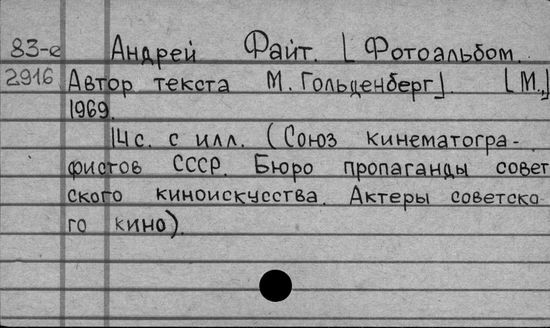 83-е Андрей Файт. [Фотоальбом.
2916 Автор текста М. Гольденберг]. [М.,]
1969.
14 с. с илл. (Союз кинематогра-
фистов СССР. Бюро пропаганды совет
ского киноискусства. Актеры советско-
го кино).